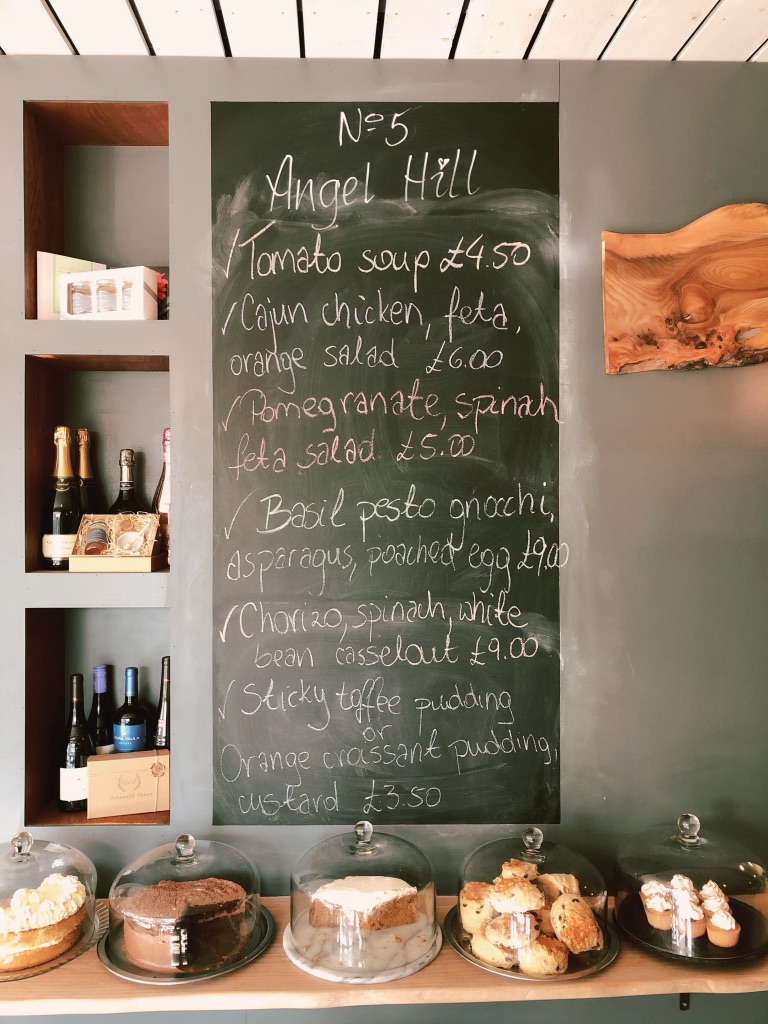 Nº5
Angel Hill
✓Tomato soup £4.50
✓Cajun chicken, feta,
orange salad £6.00
✓Pomegranate, spinach
feta salad £5.00
✓ Basil pesto gnocchi,
asparagus, poached egg £9.00
✓Chorizo, spinach, white
bean casselout £9.00
✓Sticky toffee pudding
or
Orange croissant pudding,
custard £3.50